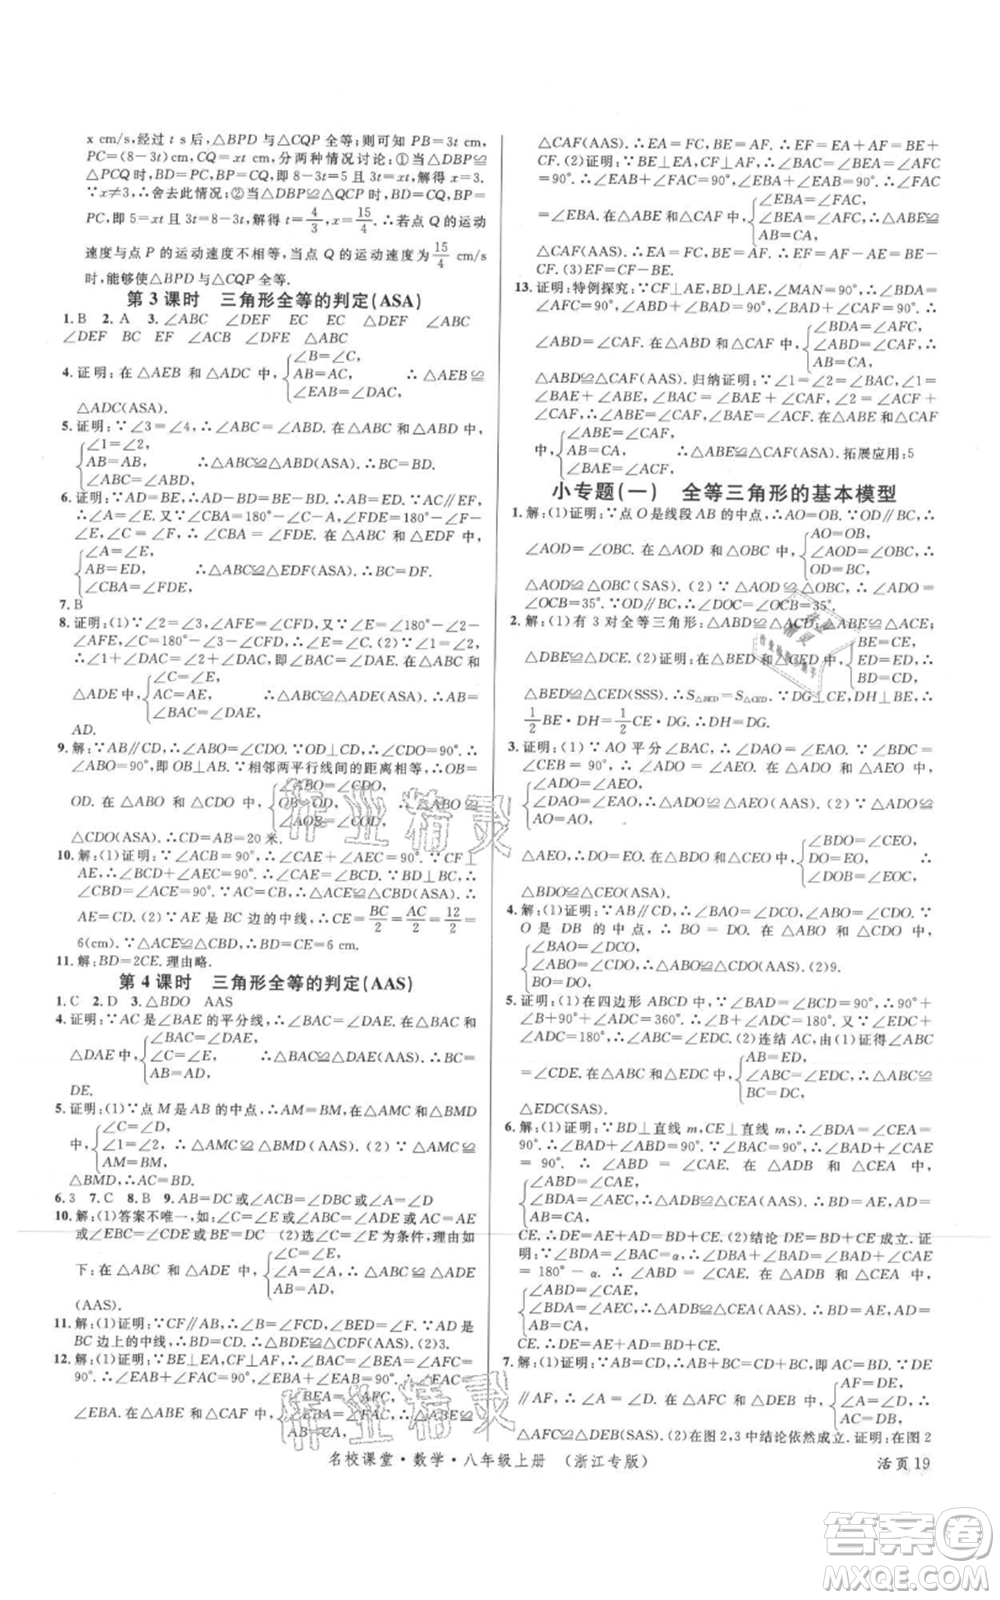 x cm/s,经过 t s后,△BPD 与△CQP 全等;则可知 PB=3t cm,
PC=(8-3t) cm,CQ=xt cm,分两种情况讨论:①当△DBP≌
△PCQ 时,BD=PC,BP=CQ,即 5=8-3t 且 3t=xt,解得 x=3.
∵x≠3,∴舍去此情况;②当△DBP≌△QCP 时,BD=CQ,BP=
PC,即 5=xt 且 3t=8-3t,解得 t=4/3,x=15/4.∴若点 Q 的运动
速度与点 P 的运动速度不相等,当点 Q 的运动速度为 15/4 cm/s
时,能够使△BPD 与△CQP 全等.
第 3 课时 三角形全等的判定(ASA)
1. B 2. A 3. ∠ABC ∠DEF EC EC △DEF ∠ABC
∠DEF BC EF ∠ACB ∠DFE △ABC
4. 证明:在△AEB 和△ADC 中,{∠B=∠C, AB=AC, ∠EAB=∠DAC, ∴△AEB≌
△ADC(ASA).
5. 证明:∵∠3=∠4,∴∠ABC=∠ABD.在△ABC 和△ABD 中,
{∠1=∠2, AB=AB, ∠ABC=∠ABD, ∴△ABC≌△ABD(ASA).∴BC=BD.
6. 证明:∵AD=BE,∴AD-BD=BE-BD,即 AB=ED.∵AC∥
BE,∴∠A=∠E.∵∠CBA=180°-∠ABE,∠FDE=180°-
∠ADF,∠ABE=∠ADF,∴∠CBA=∠FDE.在△ABC 和△EDF
中,{∠A=∠E, AB=ED, ∠CBA=∠FDE, ∴△ABC≌△EDF(ASA).∴AC=EF.
7. B
8. 证明:∵∠1=∠2,∴∠1+∠DAC=∠2+∠DAC,即∠BAC=
∠DAE.∵∠C=180°-∠3-∠DFC,∠E=180°-∠2-∠AFE,
∠2=∠3,∠DFC=∠AFE,∴∠C=∠E.在△ABC 和
△ADE 中,{∠C=∠E, AC=AE, ∠BAC=∠DAE, ∴△ABC≌△ADE(ASA).∴AB=
AD.
9. 解:∵AB∥CD,∴∠ABO=∠CDO.∵OD⊥CD,∴∠CDO=90°.∴
∠ABO=90°,即 OB⊥AB.∵相邻两平行线间的距离相等,∴OB=
OD.在△ABO 和△CDO 中,{∠ABO=∠CDO, OB=OD, ∠AOB=∠COD, ∴△ABO≌
△CDO(ASA).∴CD=AB=20 米.
10. 解:(1)证明:∵∠ACB=90°,∴∠CAE+∠AEC=90°.∵CF⊥
AE,∴∠BCD+∠AEC=90°.∴∠CAE=∠BCD.∵BD⊥BC,∴
∠CBD=∠ACE=90°.∵AC=CB,∴△ACE≌△CBD(ASA).∴
AE=CD.(2)∵AE 是 BC 边的中线,∴CE=BC/2=AC/2=12/2=
6(cm).∵△ACE≌△CBD,∴BD=CE=6 cm.
11. 解:BD=2CE.理由略.
第 4 课时 三角形全等的判定(AAS)
1. C 2. D 3. △BDO AAS
4. 证明:∵AC 是∠BAE 的平分线,∴∠BAC=∠DAE.在△BAC 和
△DAE 中,{∠BAC=∠DAE, ∠C=∠E, AB=AD, ∴△BAC≌△DAE(AAS).∴BC=
DE.
5. 证明:(1)∵点 M 是 AB 的中点,∴AM=BM.在△AMC 和△BMD
中,{∠C=∠D, ∠1=∠2, AM=BM, ∴△AMC≌△BMD(AAS).(2)∵△AMC≌
△BMD,∴AC=BD.
6. 3 7. C 8. B 9. AB=DC 或 AC=DB 或∠A=∠D
10. 解:(1)答案不唯一,如:∠C=∠E 或 AB=AD 或 AC=AE
或∠EBC=∠CDE 或 BE=DC (2)选∠C=∠E 为条件,理由如
下:在△ABC 和△ADE 中,{∠C=∠E, ∠A=∠A, ∴△ABC≌△ADE
(AAS).
11. 解:(1)证明:∵CF∥AB,∴∠B=∠FCD,∠BED=∠F.∵AD 是
BC 边上的中线,∴BD=CD.∴△BDE≌△CDF(AAS).(2)3.
12. 解:(1)证明:∵BE⊥EA,CF⊥AF,∴∠BAC=∠BEA=∠CFE=
90°.∴∠EAB+∠CAF=90°,∠EBA+∠EAB=90°.∴∠CAF=
∠EBA.在△ABE 和△CAF 中,{∠BEA=∠AFC, ∠EBA=∠FAC, ∴△ABE≌
△CAF(AAS).∴EA=FC,BE=AF.∴EF=EA+AF=BE+
CF.(2)证明:∵BE⊥EA,CF⊥AF,∴∠BAC=∠BEA=∠CFE=
90°.∴∠EAB+∠FAC=90°,∠EBA+∠EAB=90°.∴∠FAC
=∠EBA.在△ABE 和△CAF 中,{∠EBA=∠FAC, ∠BEA=∠AFC, AB=CA, ∴△ABE≌
△CAF(AAS).∴EA=FC,BE=AF.∴EF=AF-EA=BE-
CF.(3)EF=CF-BE.
13. 证明:特例探究:∵CF⊥AE,BD⊥AE,∠MAN=90°,∴∠BDA=
∠AFC=90°,∴∠ABD+∠BAD=90°,∠BAD+∠CAF=90°.∴
∠ABD=∠CAF.在△ABD 和△CAF 中,{∠BDA=∠AFC, ∠ABD=∠CAF, AB=CA, ∴
△ABD≌△CAF(AAS).归纳证明:∵∠1=∠2=∠BAC,∠1=
∠BAE+∠ABE,∠BAC=∠BAE+∠CAF,∠2=∠FCA+
∠CAF,∴∠ABE=∠CAF,∠BAE=∠FCA.在△ABE 和△CAF
中,{∠ABE=∠CAF, AB=CA, ∠BAE=∠ACF, ∴△ABE≌△CAF(ASA).拓展应用:5
小专题(一) 全等三角形的基本模型
1. 解:(1)证明:∵点 O 是线段 AB 的中点,∴AO=OB.∵OD∥BC,∴
∠AOD=∠OBC.在△AOD 和△OBC 中,{AO=OB, ∠AOD=∠OBC, OD=BC, ∴
△AOD≌△OBC(SAS).(2)∵△AOD≌△OBC,∴∠ADO=
∠OCB=35°.∵OD∥BC,∴∠DOC=∠OCB=35°.
2. 解:(1)有 3 对全等三角形:△ABD≌△ACD;△ABE≌△ACE;
△DBE≌△DCE.(2)证明:在△BED 和△CED 中,{DB=DC, BE=CE, ED=ED, ∴
△BED≌△CED(SSS).∴S△BED=S△CED.∵DG⊥CE,DH⊥BE,∴
1/2 BE·DH=1/2 CE·DG.∴DH=DG.
3. 证明:(1)∵AO 平分∠BAC,∴∠DAO=∠EAO.∵∠BDC=
∠CEB=90°,∴∠ADO=∠AEO.在△ADO 和△AEO 中,
{∠ADO=∠AEO, ∠DAO=∠EAO, AO=AO, ∴△ADO≌△AEO(AAS).(2)∵△ADO≌
△AEO,∴DO=EO.在△BDO 和△CEO 中,{∠BDO=∠CEO, DO=EO, ∠DOB=∠EOC, ∴
△BDO≌△CEO(ASA).∴OB=OC.
4. 解:(1)证明:∵AB∥CD,∴∠BAO=∠DCO,∠ABO=∠CDO.∵
O 是 DB 的中点,∴DO=BO.在△ABO 和△CDO 中,
{∠BAO=∠DCO, ∠ABO=∠CDO, BO=DO, ∴△ABO≌△CDO(AAS).∴AB=CD.(2)9.
5. 证明:(1)∵在四边形 ABCD 中,∠BAD=∠BCD=90°,∴90°
+∠B+90°+∠ADC=360°.∴∠B+∠ADC=180°.又∵∠CDE
+∠ADC=180°,∴∠ABC=∠CDE.(2)连结 AC,由(1)证得∠ABC
=∠CDE.在△ABC 和△EDC 中,{AB=ED, ∠ABC=∠CDE, BC=DC, ∴△ABC≌
△EDC(SAS).
6. 证明:(1)∵BD⊥直线 m,CE⊥直线 m,∴∠BDA=∠AEC=90°.
∵∠BAC=90°,∴∠BAD+∠CAE=90°.∵∠BAD+∠ABD
=90°,∴∠ABD=∠CAE.在△ADB 和△CEA 中,
{∠ABD=∠CAE, ∠BDA=∠AEC, AB=CA, ∴△ADB≌△CEA(AAS).∴AD=CE,AE=BD.∴DE=AE+AD=BD+
CE.(2)结论 DE=BD+CE 成立.证
明:∵∠BDA=∠BAC=α,∴∠DBA+∠BAD=∠BAD+∠CAE
=180°-α.∴∠DBA=∠CAE.在△ADB 和△CEA 中,
{∠BDA=∠AEC, ∠DBA=∠CAE, AB=CA, ∴△ADB≌△CEA(AAS).∴AE=BD,AD=
CE.∴DE=AE+AD=BD+CE.
7. 解:(1)证明:∵AB=CD,∴AB+BC=CD+BC,即 AC=BD.∵DE
∥AF,∴∠A=∠D.在△AFC 和△DEB 中,{AF=DE, ∠A=∠D, AC=DB, ∴
△AFC≌△DEB(SAS).(2)在图 2,3 中结论依然成立.如:在图 2
名校课堂·数学·八年级上册 (浙江专版)
活页 19
作业精灵
作业精灵
答案卷
MXQE.COM